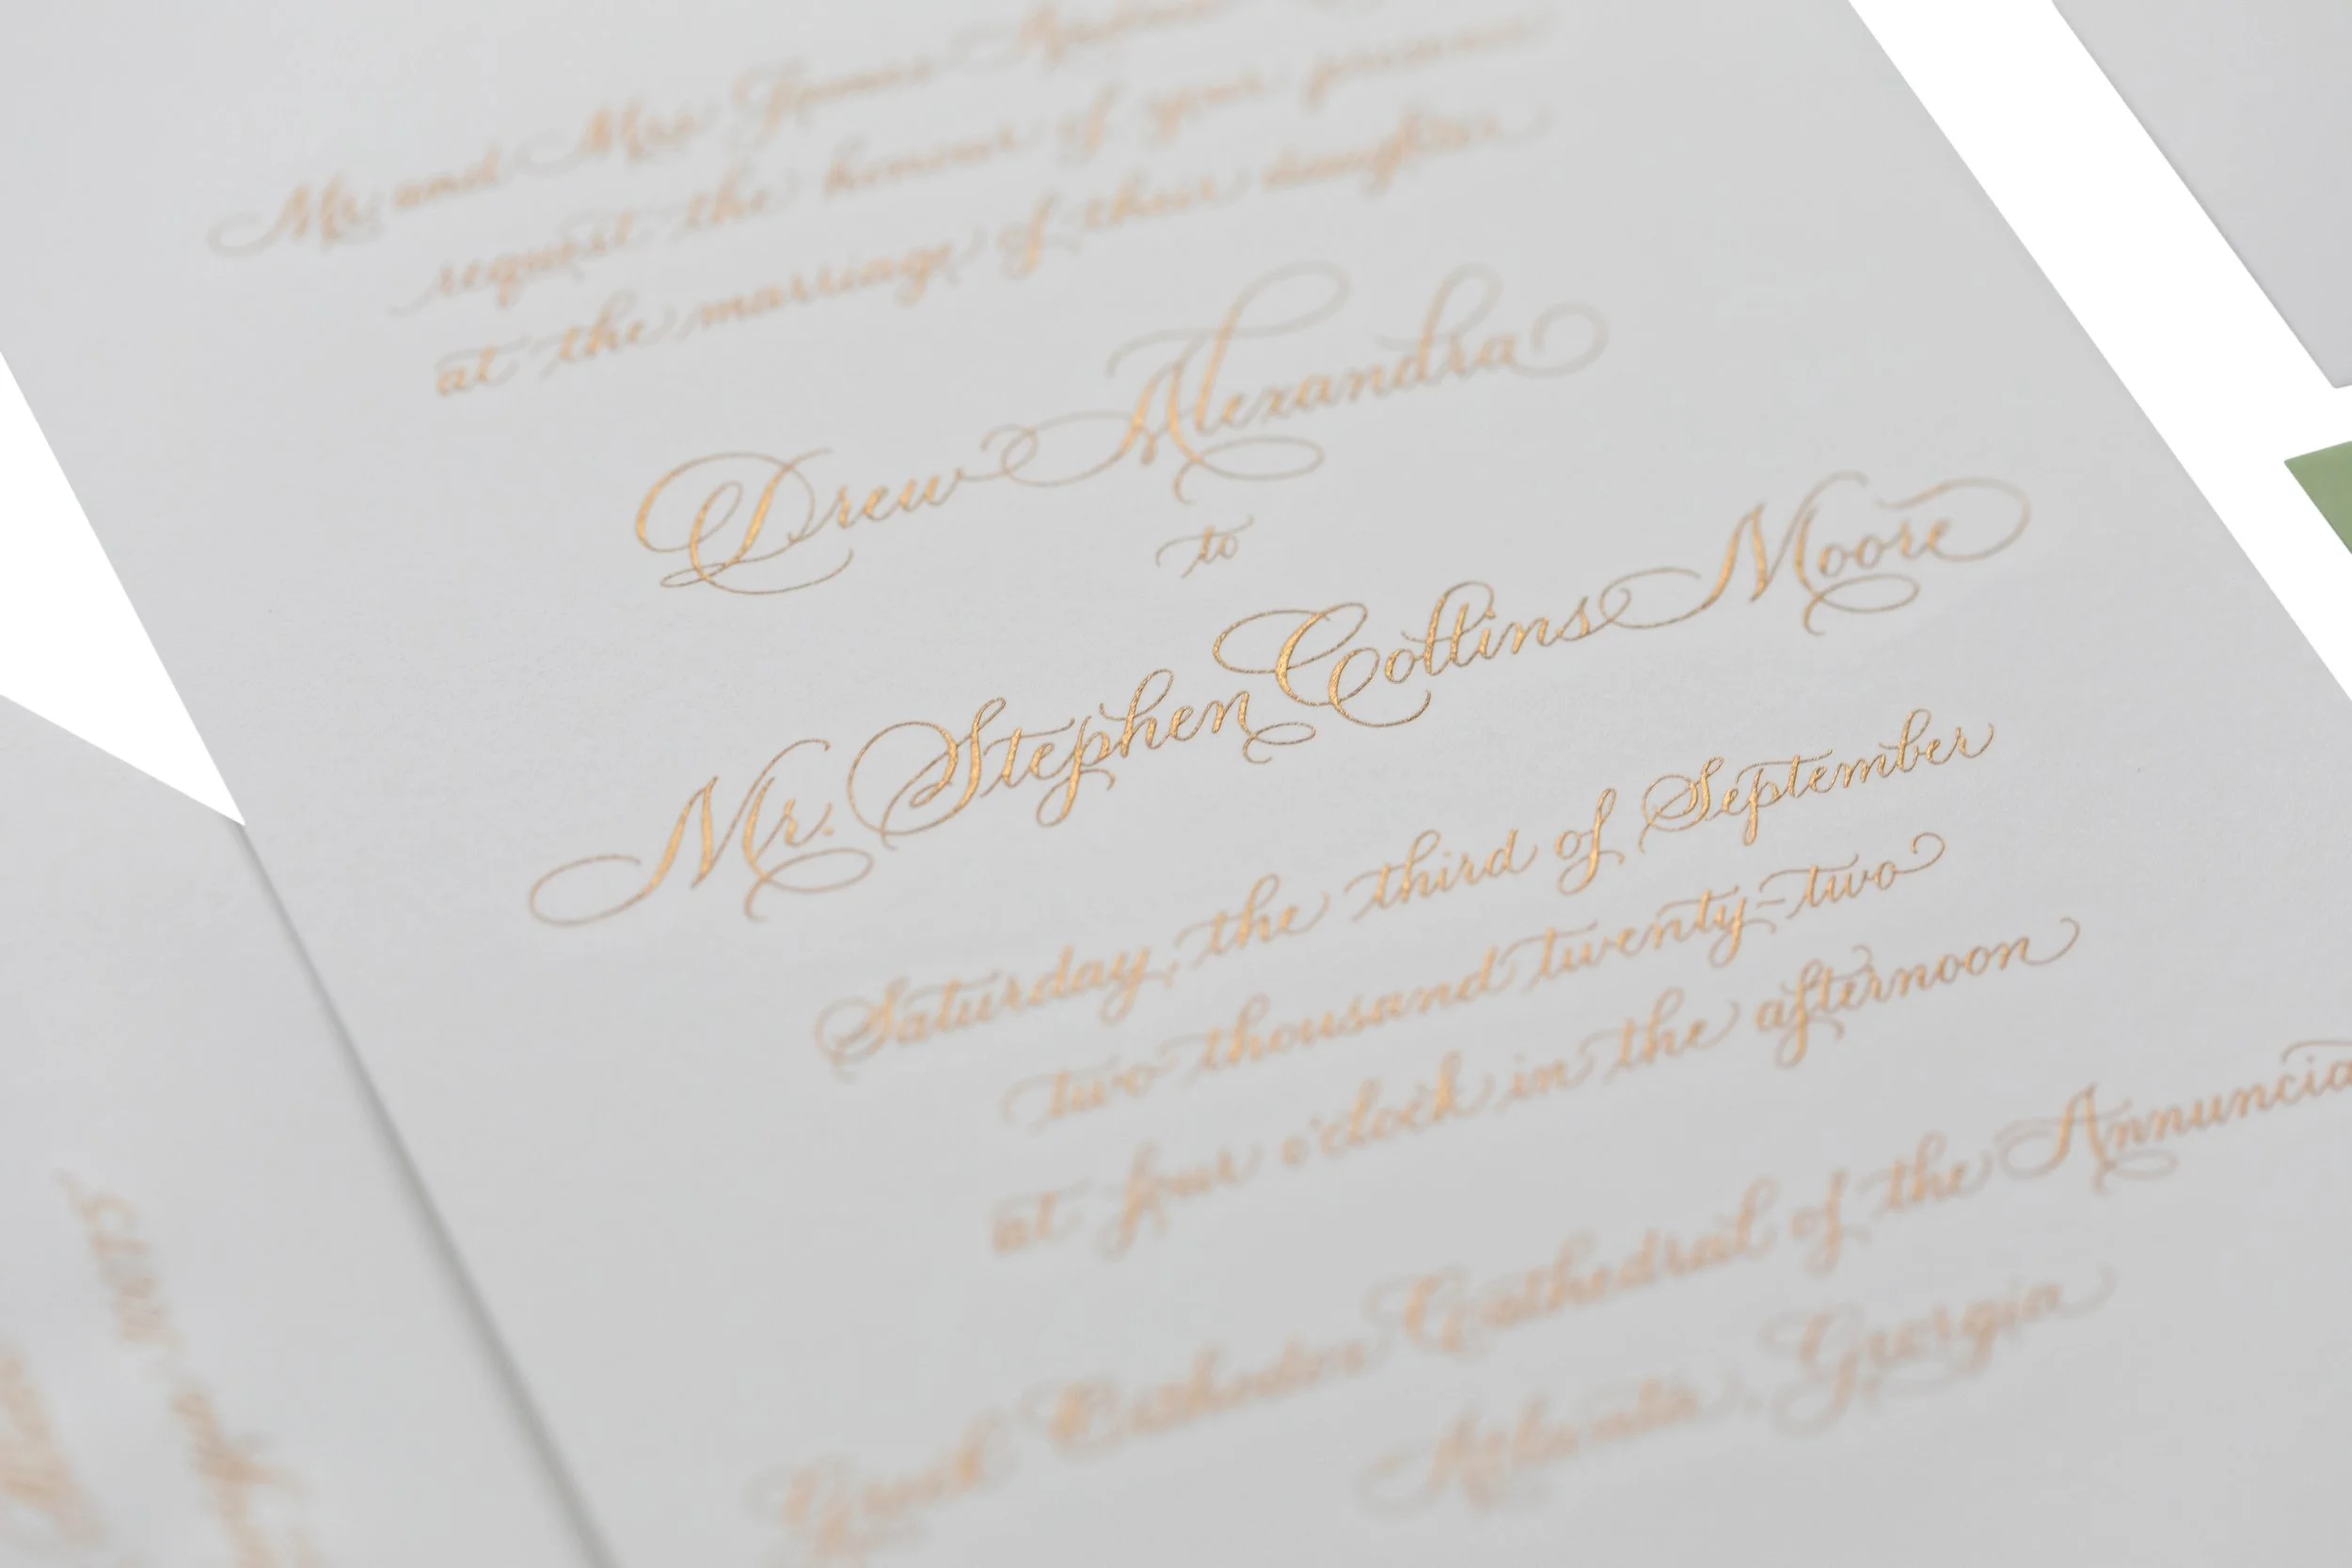 Mr. and Mrs.
request the honour of your presence
at the marriage of their daughter
Drew Alexandra
to
Mr. Stephen Collins Moore
Saturday, the third of September
two thousand twenty-two
at four o'clock in the afternoon
Greek Orthodox Cathedral of the Annuncia
Atlanta, Georgia